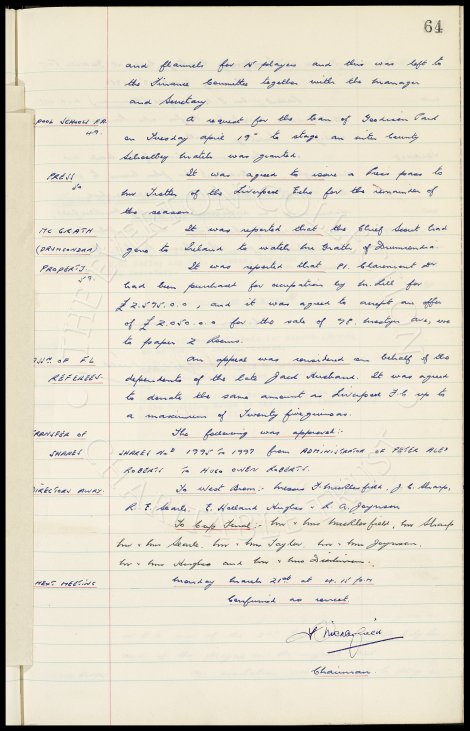 64
and flannels for 14 players and this was left to
the Finance Committee together with the Manager
and Secretary
POOL SCHOOLS F.A. A request for the loan of Goodison Park
49. on Tuesday April 19th to stage an inter County
Schoolboy match was granted.
PRESS It was agreed to issue a Press pass to
50 Mr Trotter of the Liverpool Echo for the remainder of
the season.
MC GRATH It was reported that the Chief Scout had
(DRUMCONDRA) gone to Ireland to watch McGrath of Drumcondra.
PROPERTY. It was reported that 91. Claremont Dr
59. had been purchased for occupation by Mr. Lill for
£2.595.0.0, and it was agreed to accept an offer
of £2.050.0.0 for the sale of 98. Mostyn Ave,
to
ASSN. OF F.L. An appeal was considered on behalf of the
REFEREES. dependents of the late Jack Husband. It was agreed
to donate the same amount as Liverpool F.C. up to
a maximum of Twenty five guineas.
TRANSFER OF The following was approved:-
SHARES SHARES Nos 1995 TO 1997 FROM ADMINISTRATOR OF PETER ALED
ROBERTS TO HUGO OWEN ROBERTS.
DIRECTORS AWAY. To West Brom:- Messrs F. Micklesfield, J. C. Sharp,
R. E. Searle, E. Holland Hughes & L. A. Joynson
To Cup Final:- Mr & Mrs Micklesfield, Mr Sharp
Mr & Mrs Searle, Mr & Mrs Taylor, Mr & Mrs Joynson
Mr & Mrs Hughes and Mr & Mrs Dickinson.
NEXT MEETING Monday March 21st at 4.15 p.m
Confirmed as correct.
Chairman.